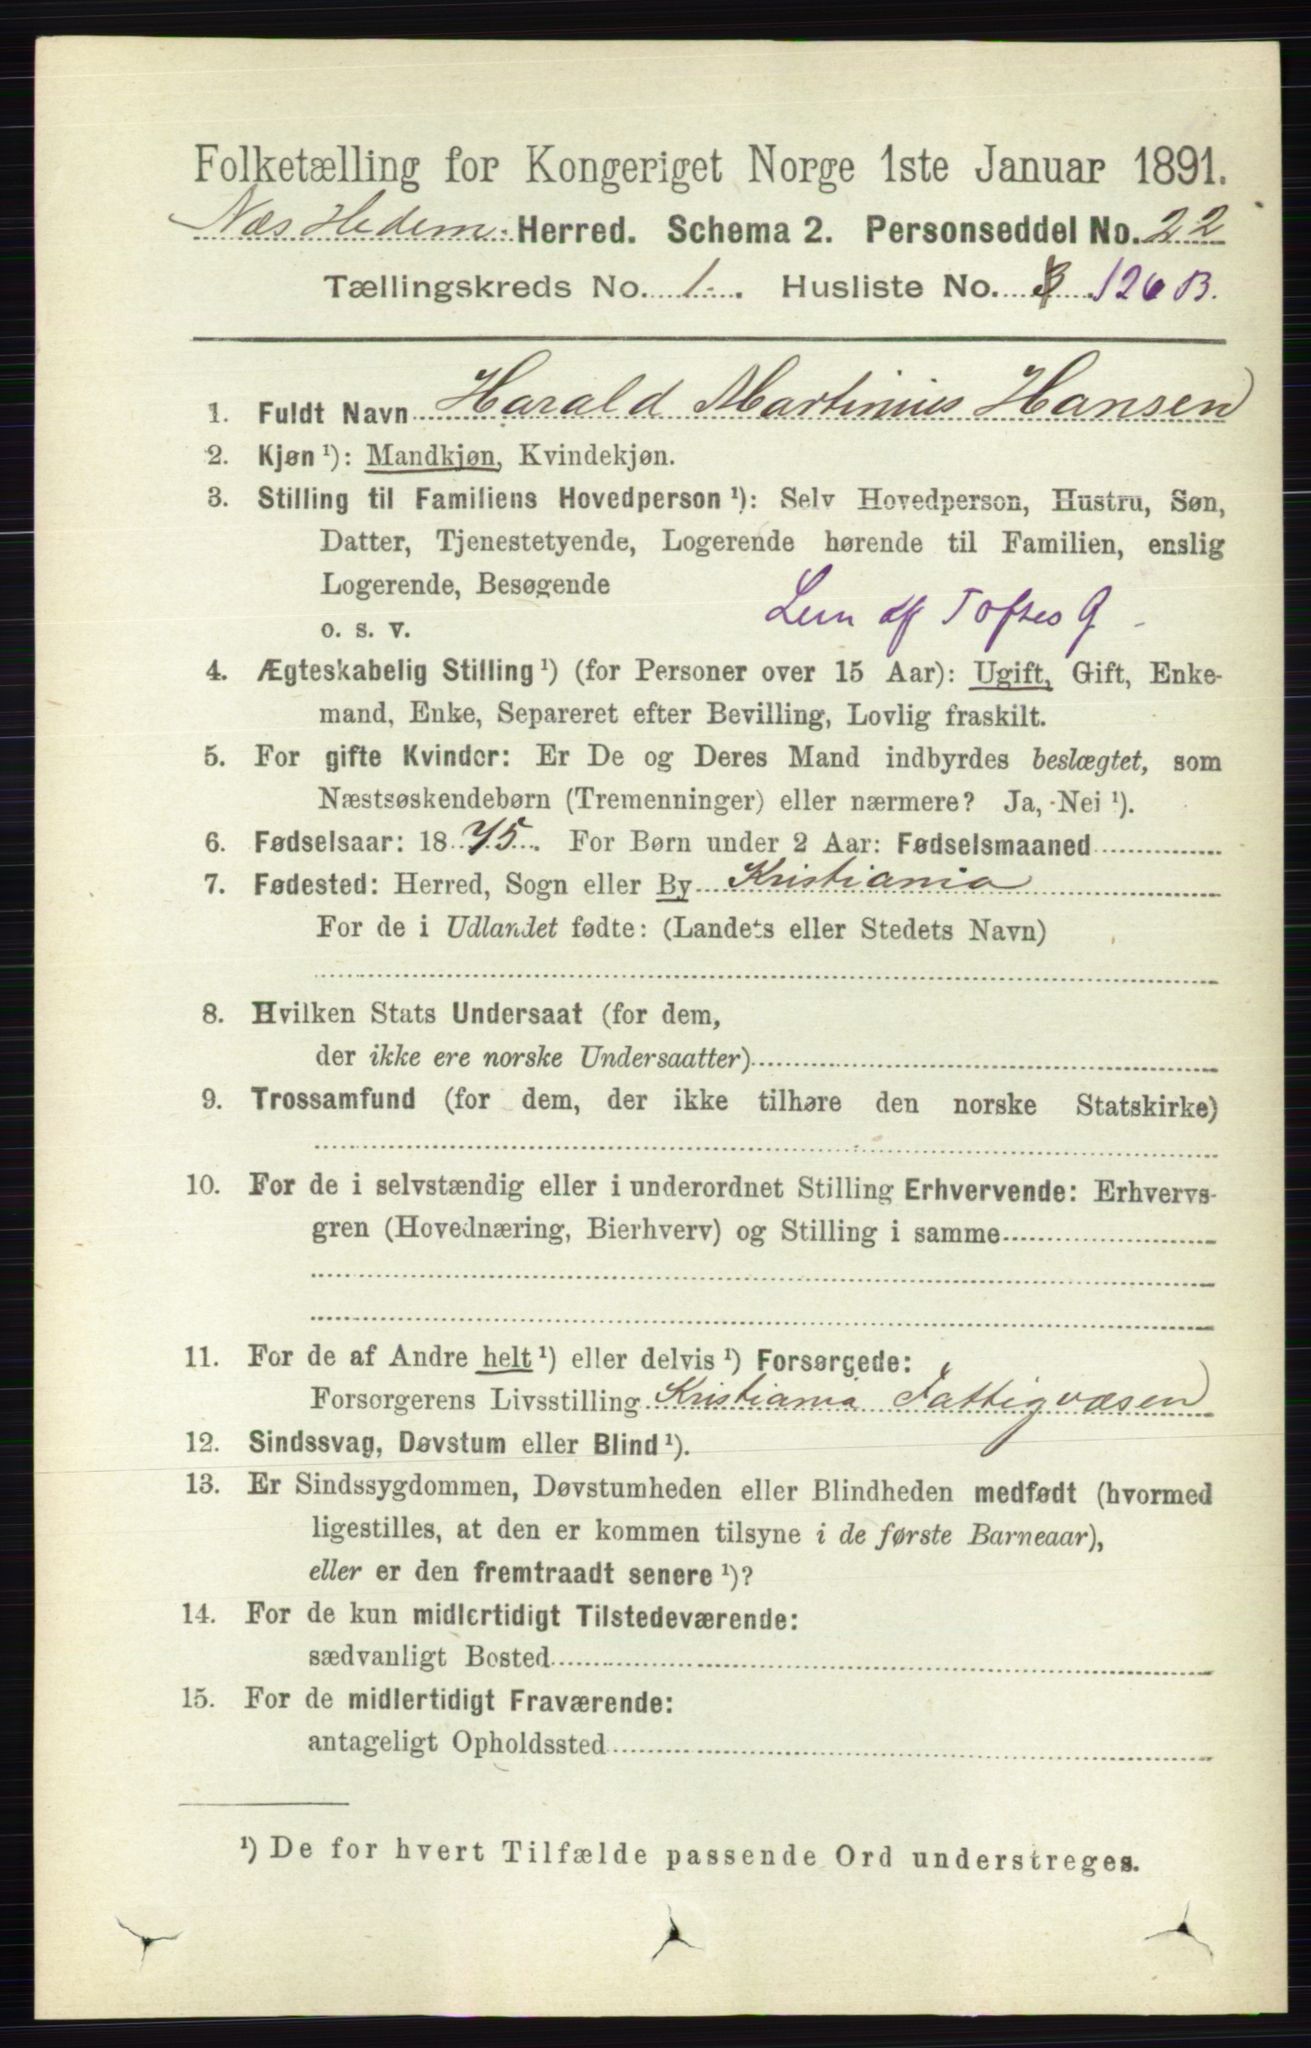 Folketælling for Kongeriget Norge 1ste Januar 1891.
Næs Hedem. Herred. Schema 2. Personseddel No. 22
Tællingskreds No. 1. Husliste No. 126 B.
1. Fuldt Navn Harald Martinius Hansen
2. Kjøn ¹): Mandkjøn, Kvindekjøn.
3. Stilling til Familiens Hovedperson ¹): Selv Hovedperson, Hustru, Søn,
Datter, Tjenestetyende, Logerende hørende til Familien, enslig
Logerende, Besøgende
o. s. v. Lem af Toftes G
4. Ægteskabelig Stilling ¹) (for Personer over 15 Aar): Ugift, Gift, Enke-
mand, Enke, Separeret efter Bevilling, Lovlig fraskilt.
5. For gifte Kvinder: Er De og Deres Mand indbyrdes beslægtet, som
Næstsøskendebørn (Tremenninger) eller nærmere? Ja, Nei ¹).
6. Fødselsaar: 1875. For Børn under 2 Aar: Fødselsmaaned
7. Fødested: Herred, Sogn eller By Kristiania
For de i Udlandet fødte: (Landets eller Stedets Navn)
8. Hvilken Stats Undersaat (for dem,
der ikke ere norske Undersaatter)
9. Trossamfund (for dem, der ikke tilhøre den norske Statskirke)
10. For de i selvstændig eller i underordnet Stilling Erhvervende: Erhvervs-
gren (Hovednæring, Bierhverv) og Stilling i samme
11. For de af Andre helt ¹) eller delvis ¹) Forsørgede:
Forsørgerens Livsstilling Kristiania Fattigvæsen
12. Sindssvag, Døvstum eller Blind ¹).
13. Er Sindssygdommen, Døvstumheden eller Blindheden medfødt (hvormed
ligestilles, at den er kommen tilsyne i de første Barneaar),
eller er den fremtraadt senere ¹)?
14. For de kun midlertidigt Tilstedeværende:
sædvanligt Bosted
15. For de midlertidigt Fraværende:
antageligt Opholdssted
¹) De for hvert Tilfælde passende Ord understreges.